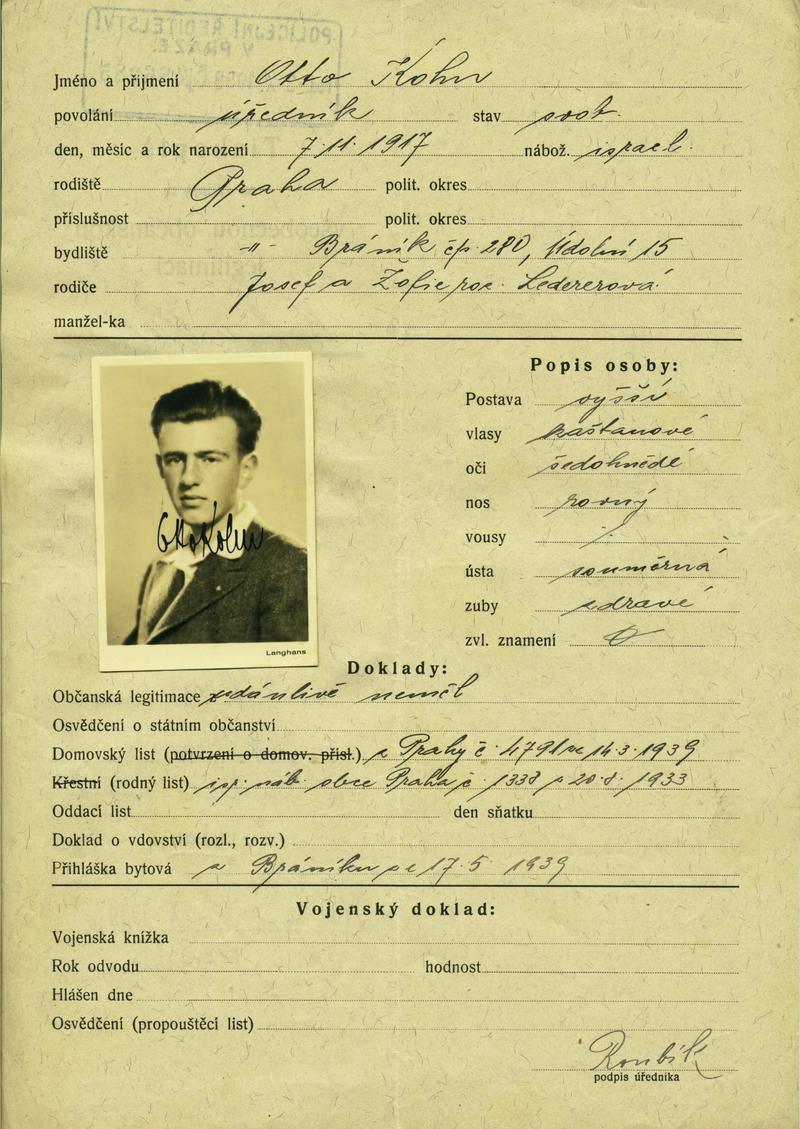 POLICEJNÍ ŘEDITELSTVÍ
V PRAZE.
Jméno a přijmení Otto Kohn
povolání úředník stav svob.
den, měsíc a rok narození 7. 11. 1917 nábož. israel.
rodiště Praha polit. okres
příslušnost polit. okres
bydliště -"- Bráník čp. 280, Údolní 15
rodiče Josef a Žofie roz. Ledererová
manžel-ka
Popis osoby:
Postava vyšší
vlasy kaštanové
oči šedohnědé
nos rovný
vousy /
ústa souměrná
zuby zdravé
zvl. znamení 0
Otto Kohn
Langhans
Doklady:
Občanská legitimace údánlivě neměl
Osvědčení o státním občanství
Domovský list (potvrzení o domov. přísl.) z Prahy č. 4791 ze 14. 3. 1939
Křestní (rodný list) isr. náb. obce Praha č. 1338 z 20. 8. 1933
Oddací list den sňatku
Doklad o vdovství (rozl., rozv.)
Přihláška bytová z Bráníku ze 17. 5. 1939
Vojenský doklad:
Vojenská knížka
Rok odvodu hodnost
Hlášen dne
Osvědčení (propouštěcí list)
Roubík
podpis úředníka